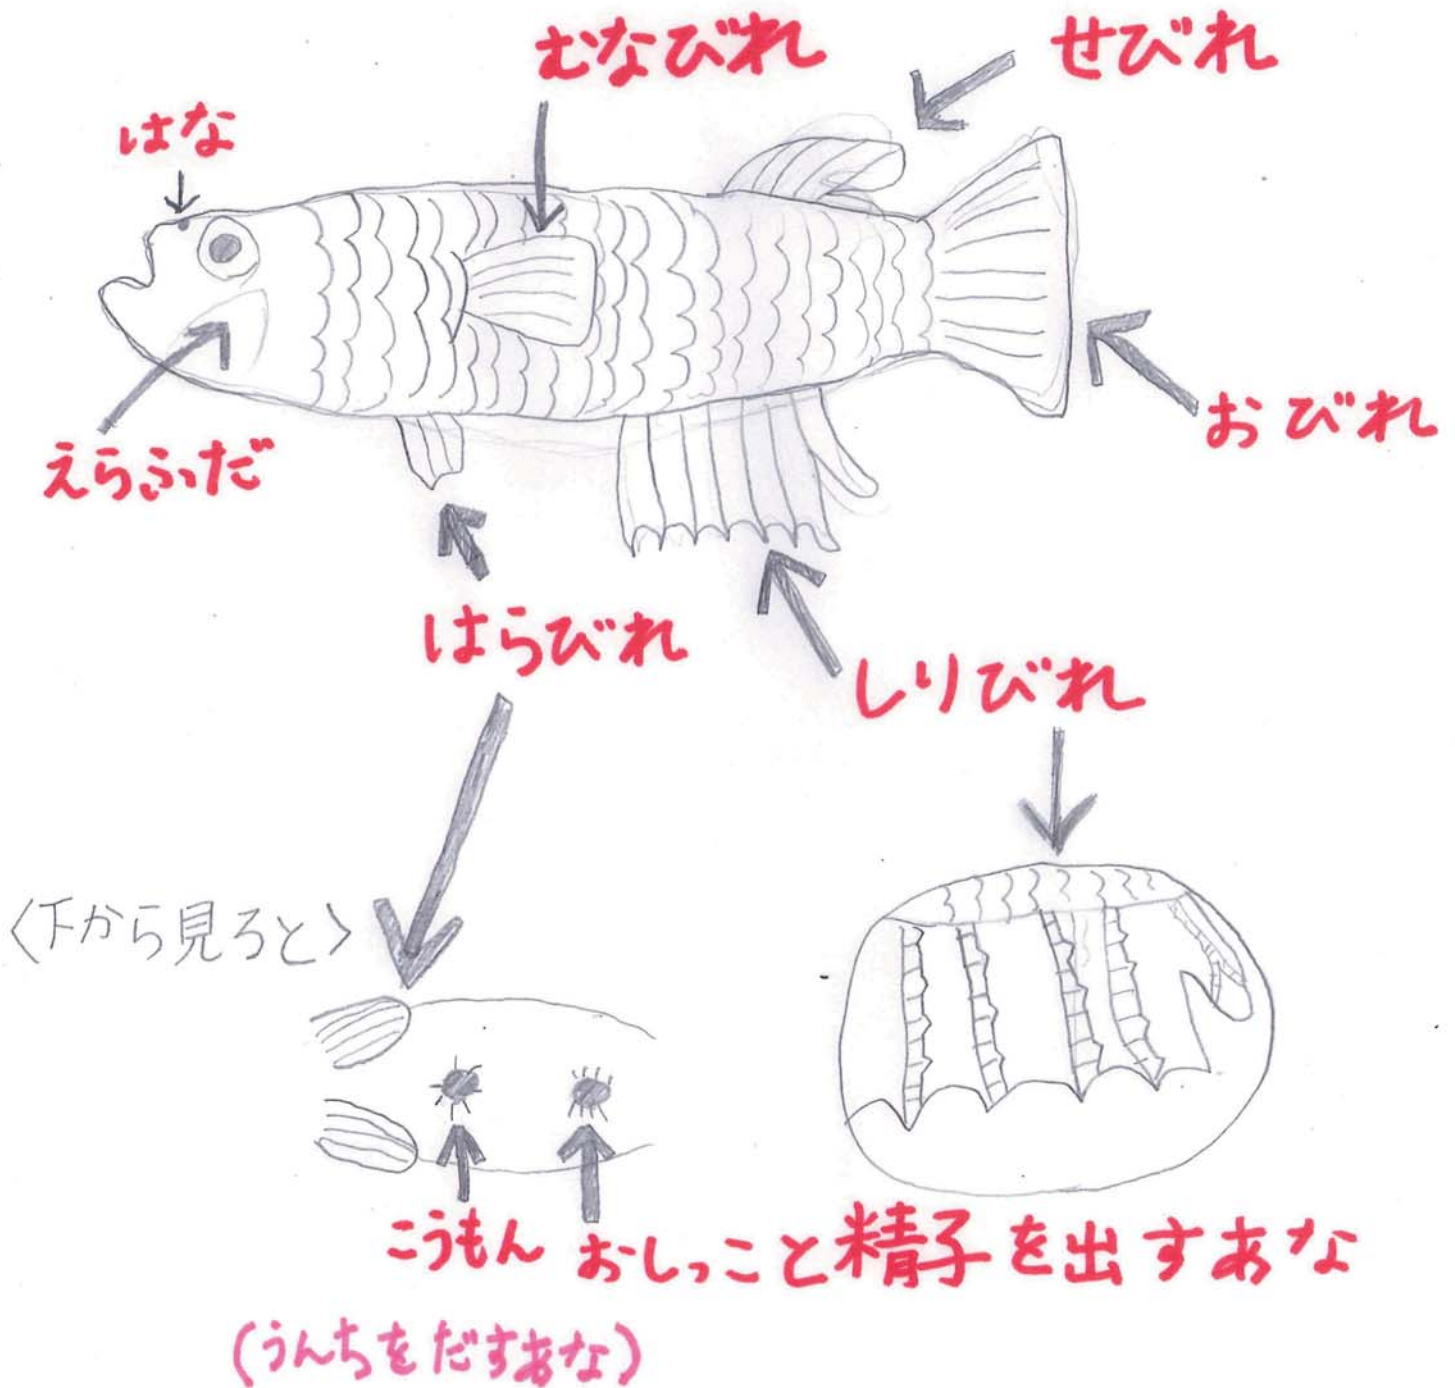 むなびれ
せびれ
はな
えらぶた
おびれ
はらびれ
しりびれ
〈下から見ると〉
こうもん
おしっこと精子を出すあな
(うんちをだすあな)